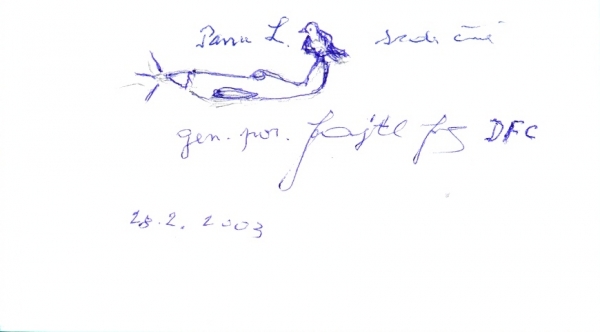 Panu L. srdečně
gen. por. Fajtl Fr DFC
28. 2. 2003